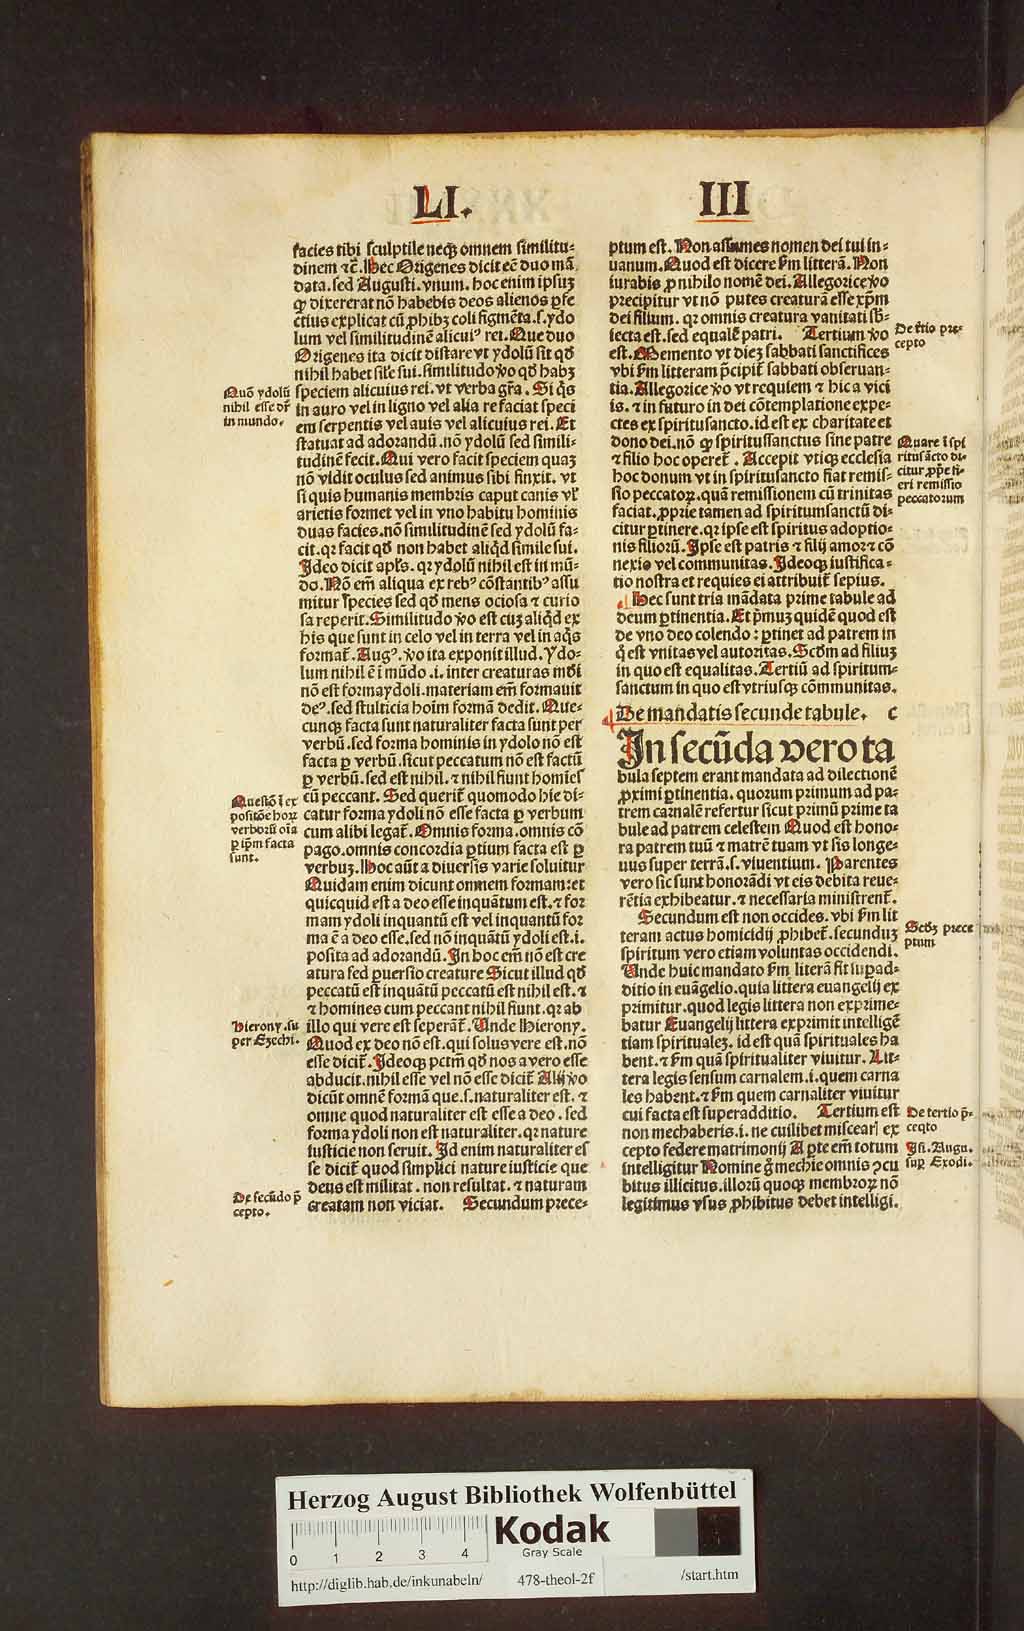 LI. III
facies tibi sculptile neqꝫ omnem similitu-
dinem ⁊c̄. Hec Origenes dicit eē duo mā
data. sed Augusti. vnum. hoc enim ipsuꝫ
qꝫ dixererat nō habebis deos alienos ꝑfe
ctius explicat cū ꝓhibꝫ coli figmēta. s. ydo
lum vel similitudinē alicuiꝰ rei. Que duo
Origenes ita dicit distare vt ydolū sit qđ
nihil habet sil'e sui. similitudo v̄o qđ habꝫ
speciem alicuius rei. vt verba gr̄a. Si q̇s
in auro vel in ligno vel alia re faciat speci
em serpentis vel auis vel alicuius rei. Et
statuat ad adorandū. nō ydolū sed simili-
tudinē fecit. Qui vero facit speciem quaꝫ
nō vidit oculus sed animus sibi finxit. vt
si quis humanis membris caput canis vl'
arietis formet vel in vno habitu hominis
duas facies. nō similitudinē sed ydolū fa-
cit. qꝛ facit qđ non habet aliq̇d simile sui.
Ideo dicit apl's. qꝛ ydolū nihil est in mū-
do. Nō em̄ aliqua ex rebꝰ cōstantibꝰ assu
mitur species sed qđ mens ociosa ⁊ curio
sa reperit. Similitudo v̄o est cuꝫ aliq̇d ex
his que sunt in celo vel in terra vel in aq̇s
format̄. Augꝰ. v̄o ita exponit illud. Ydo-
lum nihil ē ī mūdo .i. inter creaturas mūdi
nō est forma ydoli. materiam em̄ formauit
deꝰ. sed stulticia hoīm formā dedit. Que-
cunqꝫ facta sunt naturaliter facta sunt per
verbū. sed forma hominis in ydolo nō est
facta ꝑ verbū. sicut peccatum nō est factū
ꝑ verbū. sed est nihil. ⁊ nihil fiunt homīes
cū peccant. Sed querit̄ quomodo hie di-
catur forma ydoli nō esse facta ꝑ verbum
cum alibi legat̄. Omnis forma. omnis cō
pago. omnis concordia ꝑtium facta est ꝑ
verbuꝫ. Hoc aūt a diuersis varie soluitur
Quidam enim dicunt omnem formam: et
quicquid est a deo esse inquātum est. ⁊ for
mam ydoli inquantū est vel inquantū for
ma ē a deo esse. sed nō inquātū ydoli est .i.
posita ad adorandū. In hoc em̄ nō est cre
atura sed ꝑuersio creature Sicut illud qđ
peccatū est inquātū peccatū est nihil est. ⁊
⁊ homines cum peccant nihil fiunt. qꝛ ab
illo qui vere est seperāt̄. Unde Hierony.
Quod ex deo nō est. qui solus vere est. nō
esse dicit̄. Ideoqꝫ pctm̄ qđ nos a vero esse
abducit. nihil esse vel nō esse dicit̄ Alij v̄o
dicūt omnē formā que .s. naturaliter est. ⁊
omne quod naturaliter est esse a deo. sed
forma ydoli non est naturaliter. qꝛ nature
iusticie non seruit. Id enim naturaliter es
se dicit̄ quod simplici nature iusticie que
deus est militat. non resultat. ⁊ naturam
creatam non viciat. Secundum prece-
Quō ydolū
nihil esse dr̄
in mundo.
Questō ī ex
positōe hoꝝ
verborū oīa
ꝑ ip̄m facta
sunt.
Hierony. su
per Ezechi.
De secūdo p̄
cepto.
ptum est. Non assumes nomen dei tui in-
uanum. Quod est dicere ẜm litterā. Non
iurabis ꝓ nihilo nomē dei. Allegorice v̄o
precipitur vt nō putes creaturā esse xp̄m
dei filium. qꝛ omnis creatura vanitati sb̄-
iecta est. sed equalē patri. Tertium v̄o
est. Memento vt dieꝫ sabbati sanctifices
vbi ẜm litteram p̄cipit̄ sabbati obseruan-
tia. Allegorice v̄o vt requiem ⁊ hic a vici
is. ⁊ in futuro in dei cōtemplatione expe-
ctes ex spiritusancto. id est ex charitate et
dono dei. nō qꝫ spiritussanctus sine patre
⁊ filio hoc operet̄. Accepit vtiqꝫ ecclesia
hoc donum vt in spiritusancto fiat remis-
sio peccatoꝝ. quā remissionem cū trinitas
faciat. ꝓprie tamen ad spiritumsanctū di-
citur ꝑtinere. qꝛ ipse est spiritus adoptio-
nis filiorū. Ipse est patris ⁊ filij amor ⁊ cō
nexio vel communitas. Ideoqꝫ iustifica-
tio nostra et requies ei attribuit̄ sepius.
Hec sunt tria mādata prime tabule ad
deum ꝑtinentia. Et p̄muꝫ quidē quod est
de vno deo colendo: ꝑtinet ad patrem in
q̄ est vnitas vel autoritas. Scđm ad filiuꝫ
in quo est equalitas. Tertiū ad spiritum-
sanctum in quo est vtriusqꝫ cōmunitas.
De mandatis secunde tabule. C
In secūda vero ta
bula septem erant mandata ad dilectionē
ꝓximi ꝑtinentia. quorum primum ad pa-
trem carnalē refertur sicut primū prime ta
bule ad patrem celestem Quod est hono-
ra patrem tuū ⁊ matrē tuam vt sis longe-
uus super terrā. s. viuentium. Parentes
vero sic sunt honorādi vt eis debita reue-
rētia exhibeatur. ⁊ necessaria ministrent̄.
Secundum est non occides. vbi ẜm lit
teram actus homicidij ꝓhibet̄. secunduꝫ
spiritum vero etiam voluntas occidendi.
Unde huic mandato ẜm literā fit supad-
ditio in euāgelio. quia littera euangelij ex
primitur. quod legis littera non exprime-
batur Euangelij littera exprimit intelligē
tiam spiritualeꝫ. id est quā spirituales ha
bent. ⁊ ẜm quā spiritualiter viuitur. Lit-
tera legis sensum carnalem .i. quem carna
les habent. ⁊ ẜm quem carnaliter viuitur
cui facta est superadditio. Tertium est
non mechaberis .i. ne cuilibet miscearỉ ex
cepto federe matrimonij A ꝑte em̄ totum
intelligitur Nomine g̊ mechie omnis ꝯcu
bitus illicitus. illorū quoqꝫ membroꝝ nō
legitimus vsus ꝓhibitus debet intelligi.
De t̄tio pre-
cepto
Quare ī spi
ritusācto di-
citur ꝓp̄e fi-
eri remissio
peccatorum
Scđꝫ prece
ptum
De tertio p̄-
cepto
Isi. Augu.
sup̄ Exodi.
Herzog August Bibliothek Wolfenbüttel
Kodak
Gray Scale
0 1 2 3 4
http://diglib.hab.de/inkunabeln/ 478-theol-2f /start.htm